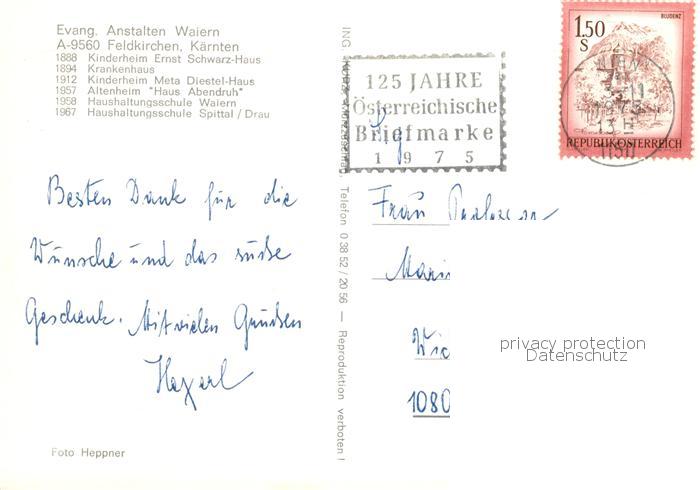 Evang. Anstalten Waiern
A-9560 Feldkirchen, Kärnten
1888 Kinderheim Ernst Schwarz-Haus
1894 Krankenhaus
1912 Kinderheim Meta Diestel-Haus
1957 Altenheim "Haus Abendruh"
1958 Haushaltungsschule Waiern
1967 Haushaltungsschule Spittal / Drau
Besten Dank für die
Wünsche und das süße
Geschenk. Mit vielen Grüßen
Foto Heppner
ING.
Telefon 0 38 52 / 20 56 — Reproduktion verboten !
125 JAHRE
Österreichische
Briefmarke
1975
BLUDENZ
1.50
S
REPUBLIK ÖSTERREICH
WIEN
1150
Frau
1080
privacy protection
Datenschutz